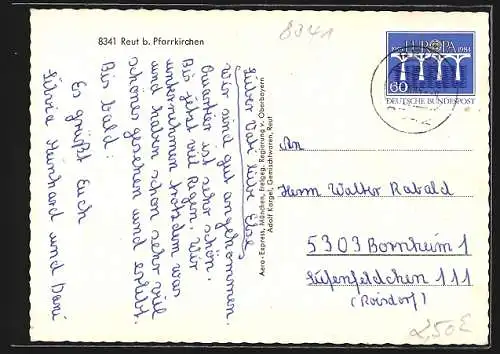 8341 Reut b. Pfarrkirchen
8341
Lieber Vati, liebe Else
Wir sind gut angekommen.
Quartier ist sehr schön.
Bis jetzt viel Regen. Wir
unternehmen trotzdem was
und haben schon sehr viel
schönes gesehen und erlebt.
Bis bald:
Es grüßt Euch
Silvia Meinhard und Dani
Aero-Express, München, Freigeg. Regierung v. Oberbayern
Adolf Kargel, Gemischtwaren, Reut
EUROPA
1984
60
DEUTSCHE BUNDESPOST
An
Herrn Walter Rabald
5303 Bornheim 1
111
(Roisdorf)
2,50 €